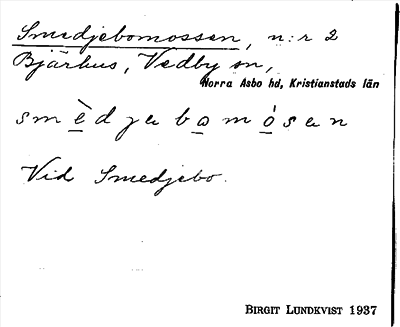 Smedjebomossen, n:r 2
Bjärhus, Vedby sn,
Norra Asbo hd, Kristianstads län
smèdjebo̲mò̲sen
Vid Smedjebo.
BIRGIT LUNDKVIST 1937